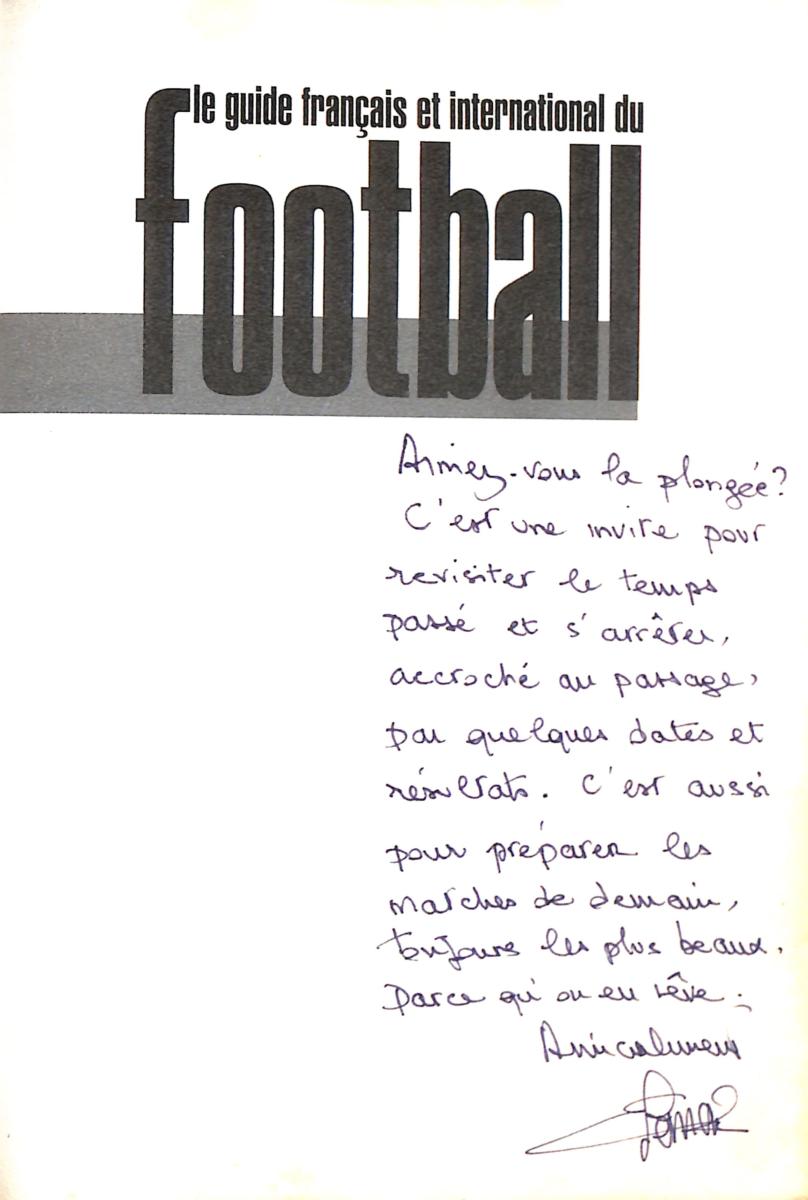 le guide français et international du
football
Aimez-vous la plongée?
C'est une invite pour
revisiter le temps
passé et s'arrêter,
accroché au passage,
par quelques dates et
résultats. C'est aussi
pour préparer les
matches de demain,
toujours les plus beaux.
Parce qu'on en rêve.
Amicalement